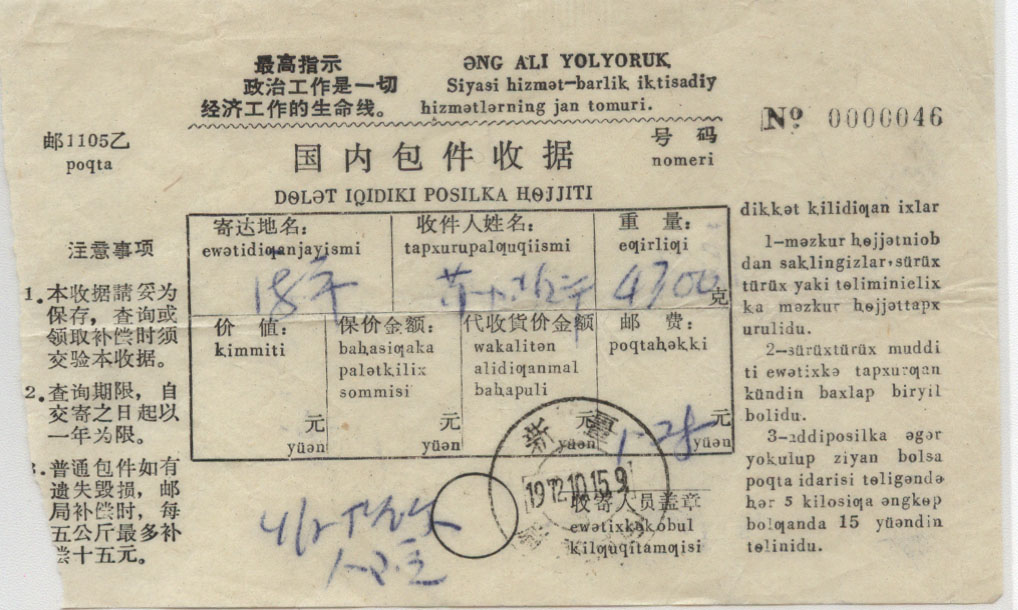 最高指示
政治工作是一切
经济工作的生命线。
ƏNG ALI YOLYORUK
Siyasi hizmət-barlik iktisadiy
hizmətlərning jan tomuri.
邮1105乙
poqta
号码
nomeri
№ 0000046
国内包件收据
DɵLƏT IQIDIKI POSILKA HɵJJITI
注意事项
1.本收据請妥为
保存，查询或
领取补偿时须
交验本收据。
2.查询期限，自
交寄之日起以
一年为限。
3.普通包件如有
遗失毁损，邮
局补偿时，每
五公斤最多补
偿十五元。
寄达地名：
ewətidiƣanjayismi
收件人姓名：
tapxurupalƣuqiismi
重量：
eƣirliƣi
4700克
价值：
kimmiti
元
yüən
保价金额：
bahasiƣaka
palətkilix
sommisi
元
yüən
代收貨价金額
wakalitən
alidiƣanmal
bahapuli
元
yüən
邮费：
poqtahəkki
1-28元
yüən
新疆
1972.10.15.9
收寄人员盖章
ewətixkəkobul
kilƣuqitamƣisi
dikkət kilidiƣan ixlar
1-məzkur həjjətniob
dan saklingizlar,sürüx
türüx yaki təliminielix
ka məzkur həjjəttapx
urulidu.
2-sürüxtürüx muddi
ti ewətixkə tapxurƣan
kündin baxlap biryil
bolidu.
3-addiposilka əgər
yokulup ziyan bolsa
poqta idarisi təligəndə
hər 5 kilosiƣa əngkəp
bolƣanda 15 yüəndin
təlinidu.